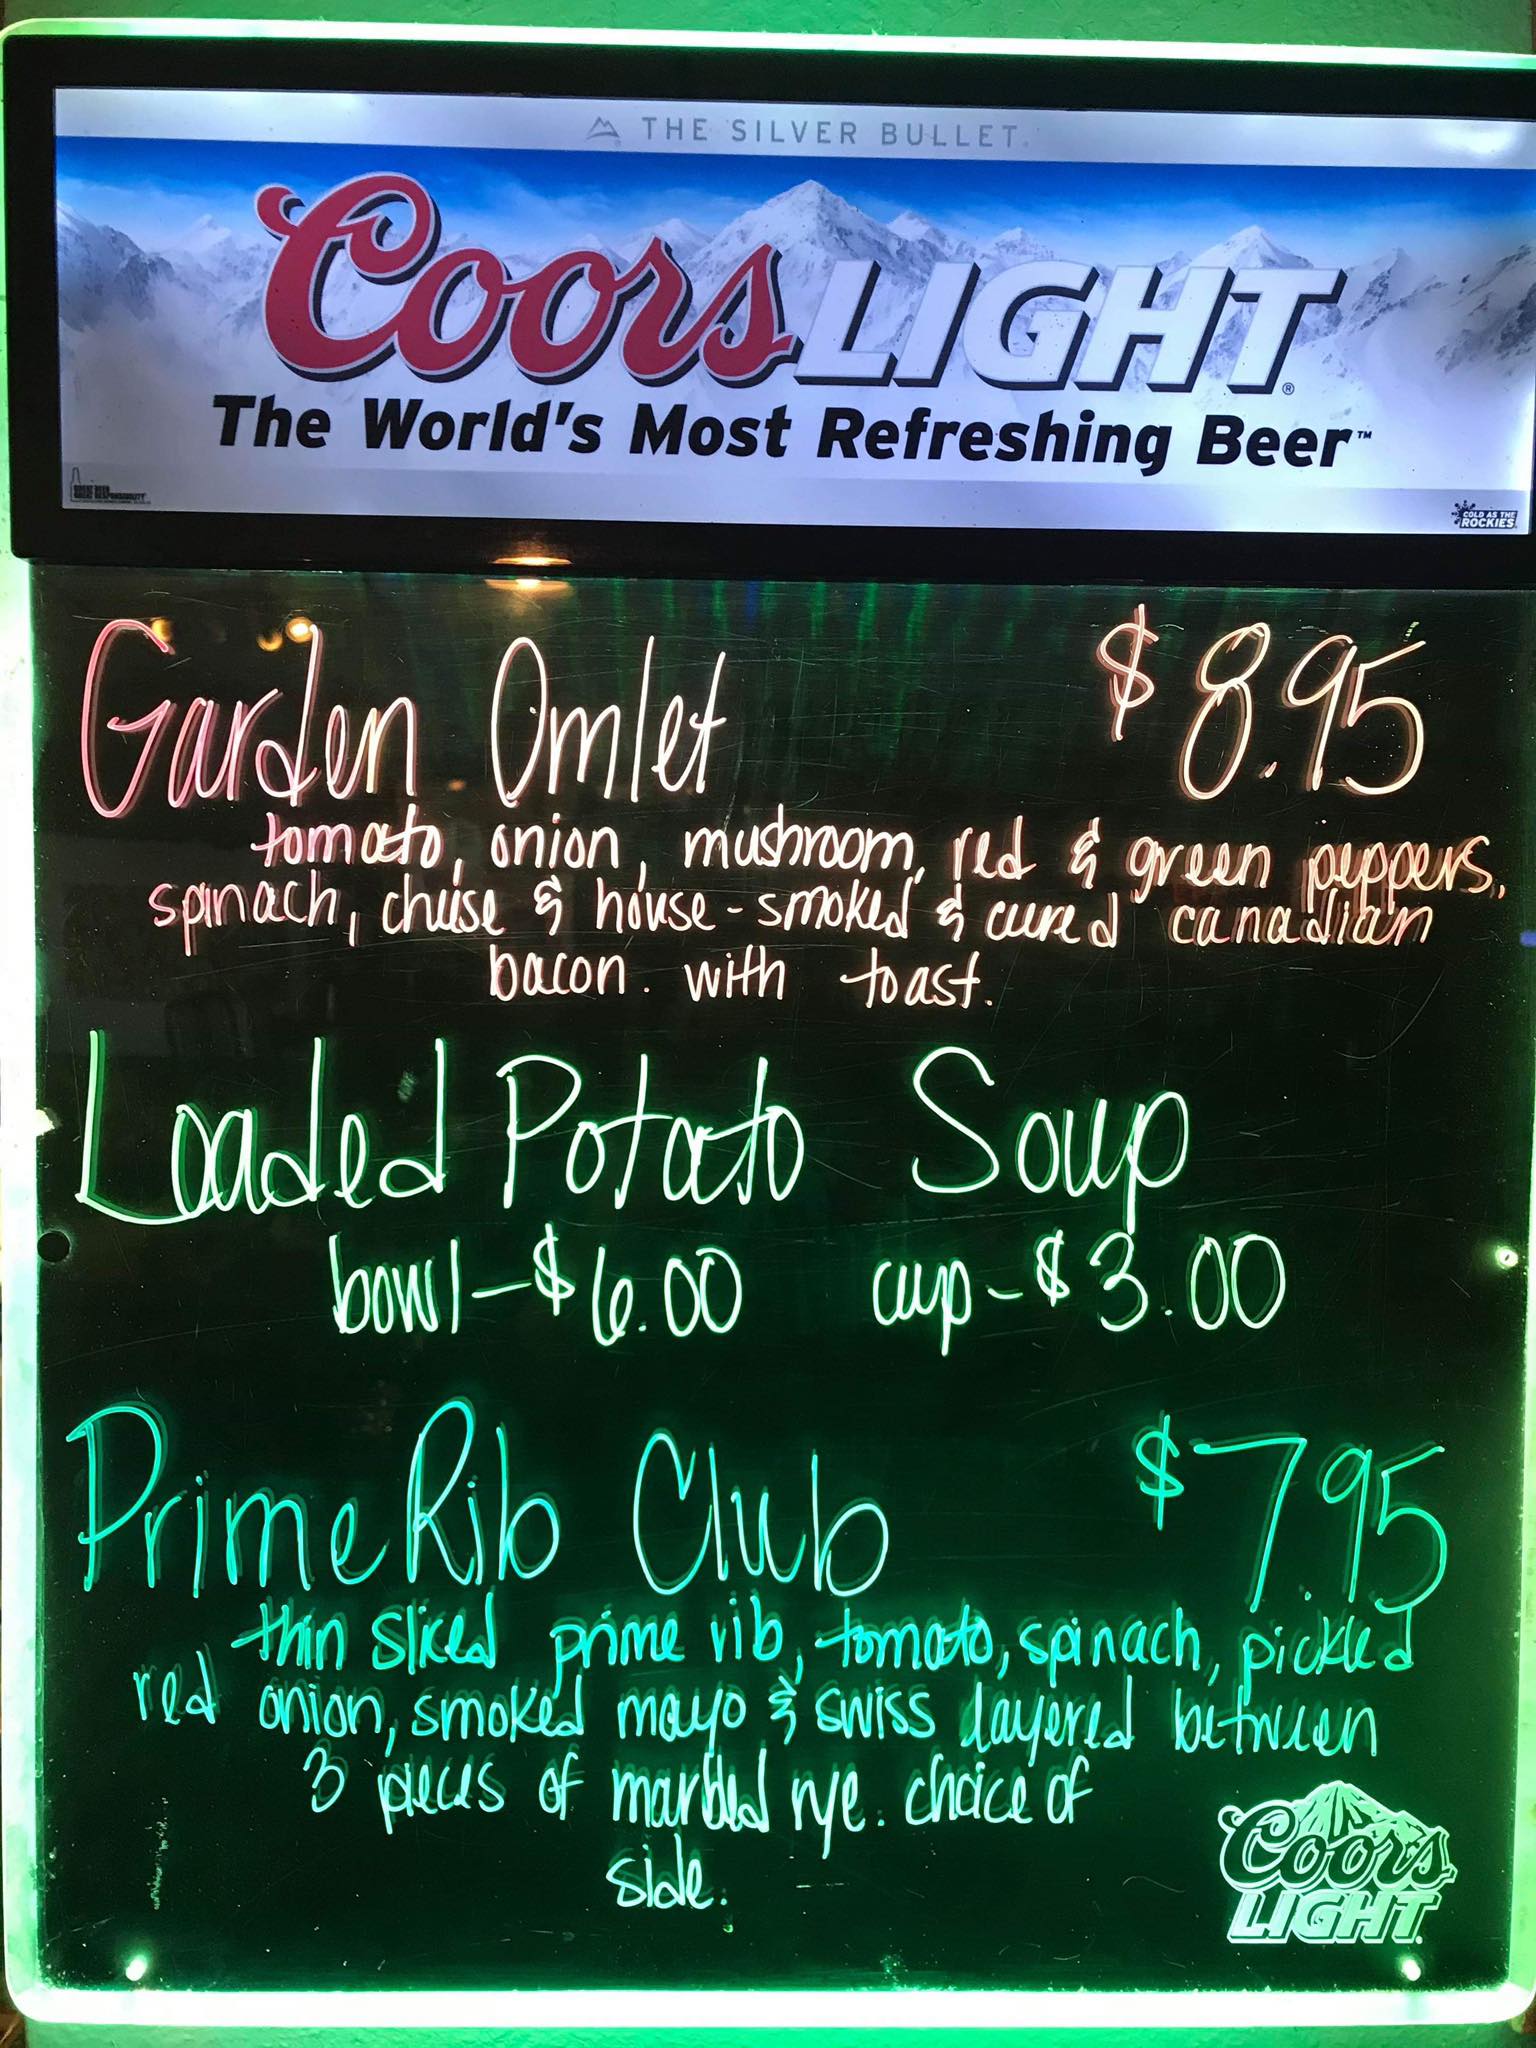 THE SILVER BULLET.
Coors LIGHT®
The World's Most Refreshing Beer™
COLD AS THE
ROCKIES
Garden Omlet $8.95
tomato, onion, mushroom, red & green peppers,
spinach, cheese & house-smoked & cured canadian
bacon. with toast.
Loaded Potato Soup
bowl-$6.00 cup-$3.00
Prime Rib Club $7.95
thin sliced prime rib, tomato, spinach, pickled
red onion, smoked mayo & swiss layered between
3 pieces of marbled rye. choice of
side.
Coors
LIGHT